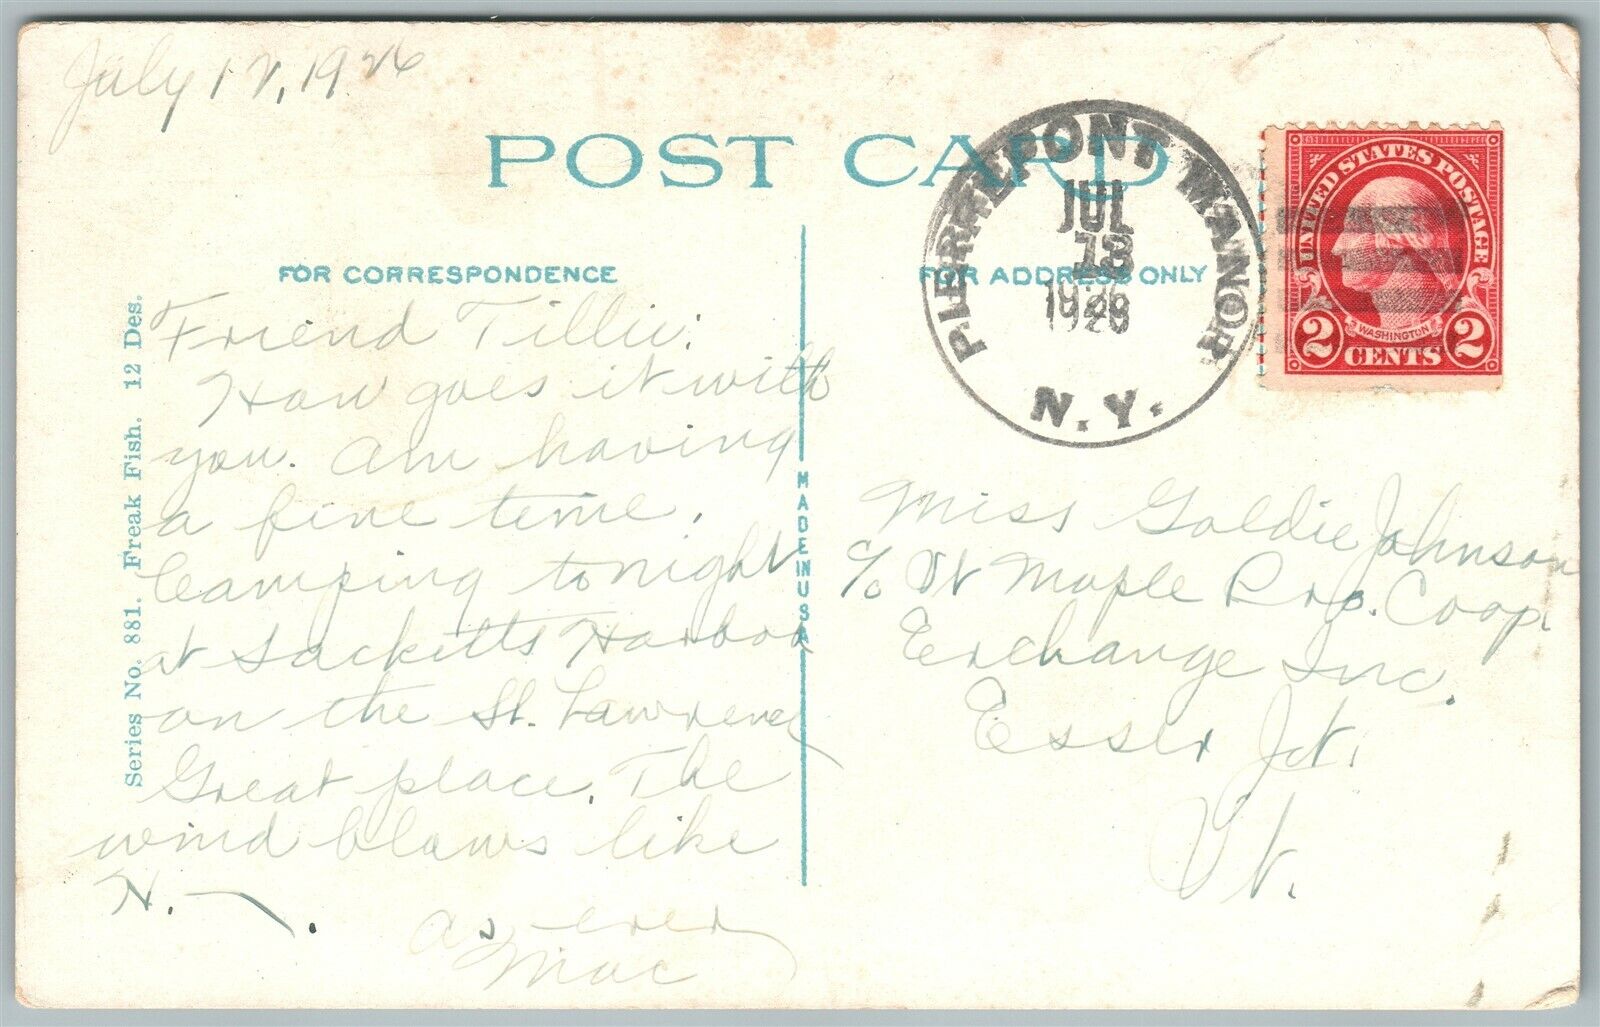 July 12, 1926
POST CARD
FOR CORRESPONDENCE
FOR ADDRESS ONLY
Series No. 881. Freak Fish. 12 Des.
MADE IN USA
PIERREPONT MANOR
JUL
N.Y.
UNITED STATES POSTAGE
WASHINGTON
2 CENTS 2
Friend Tillie:
How goes it with
you. Am having
a fine time.
Camping tonight
at Sacketts Harbor
on the St. Lawrence
Great place. The
wind blows like
H. —.
As ever
Mac
Miss Goldie Johnson
c/o Vt Maple Pro. Coop.
Exchange Inc.
Essex Jct.
Vt.